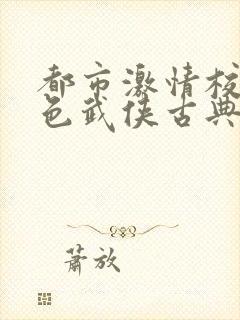 都市激情校
色武侠古典
萧放